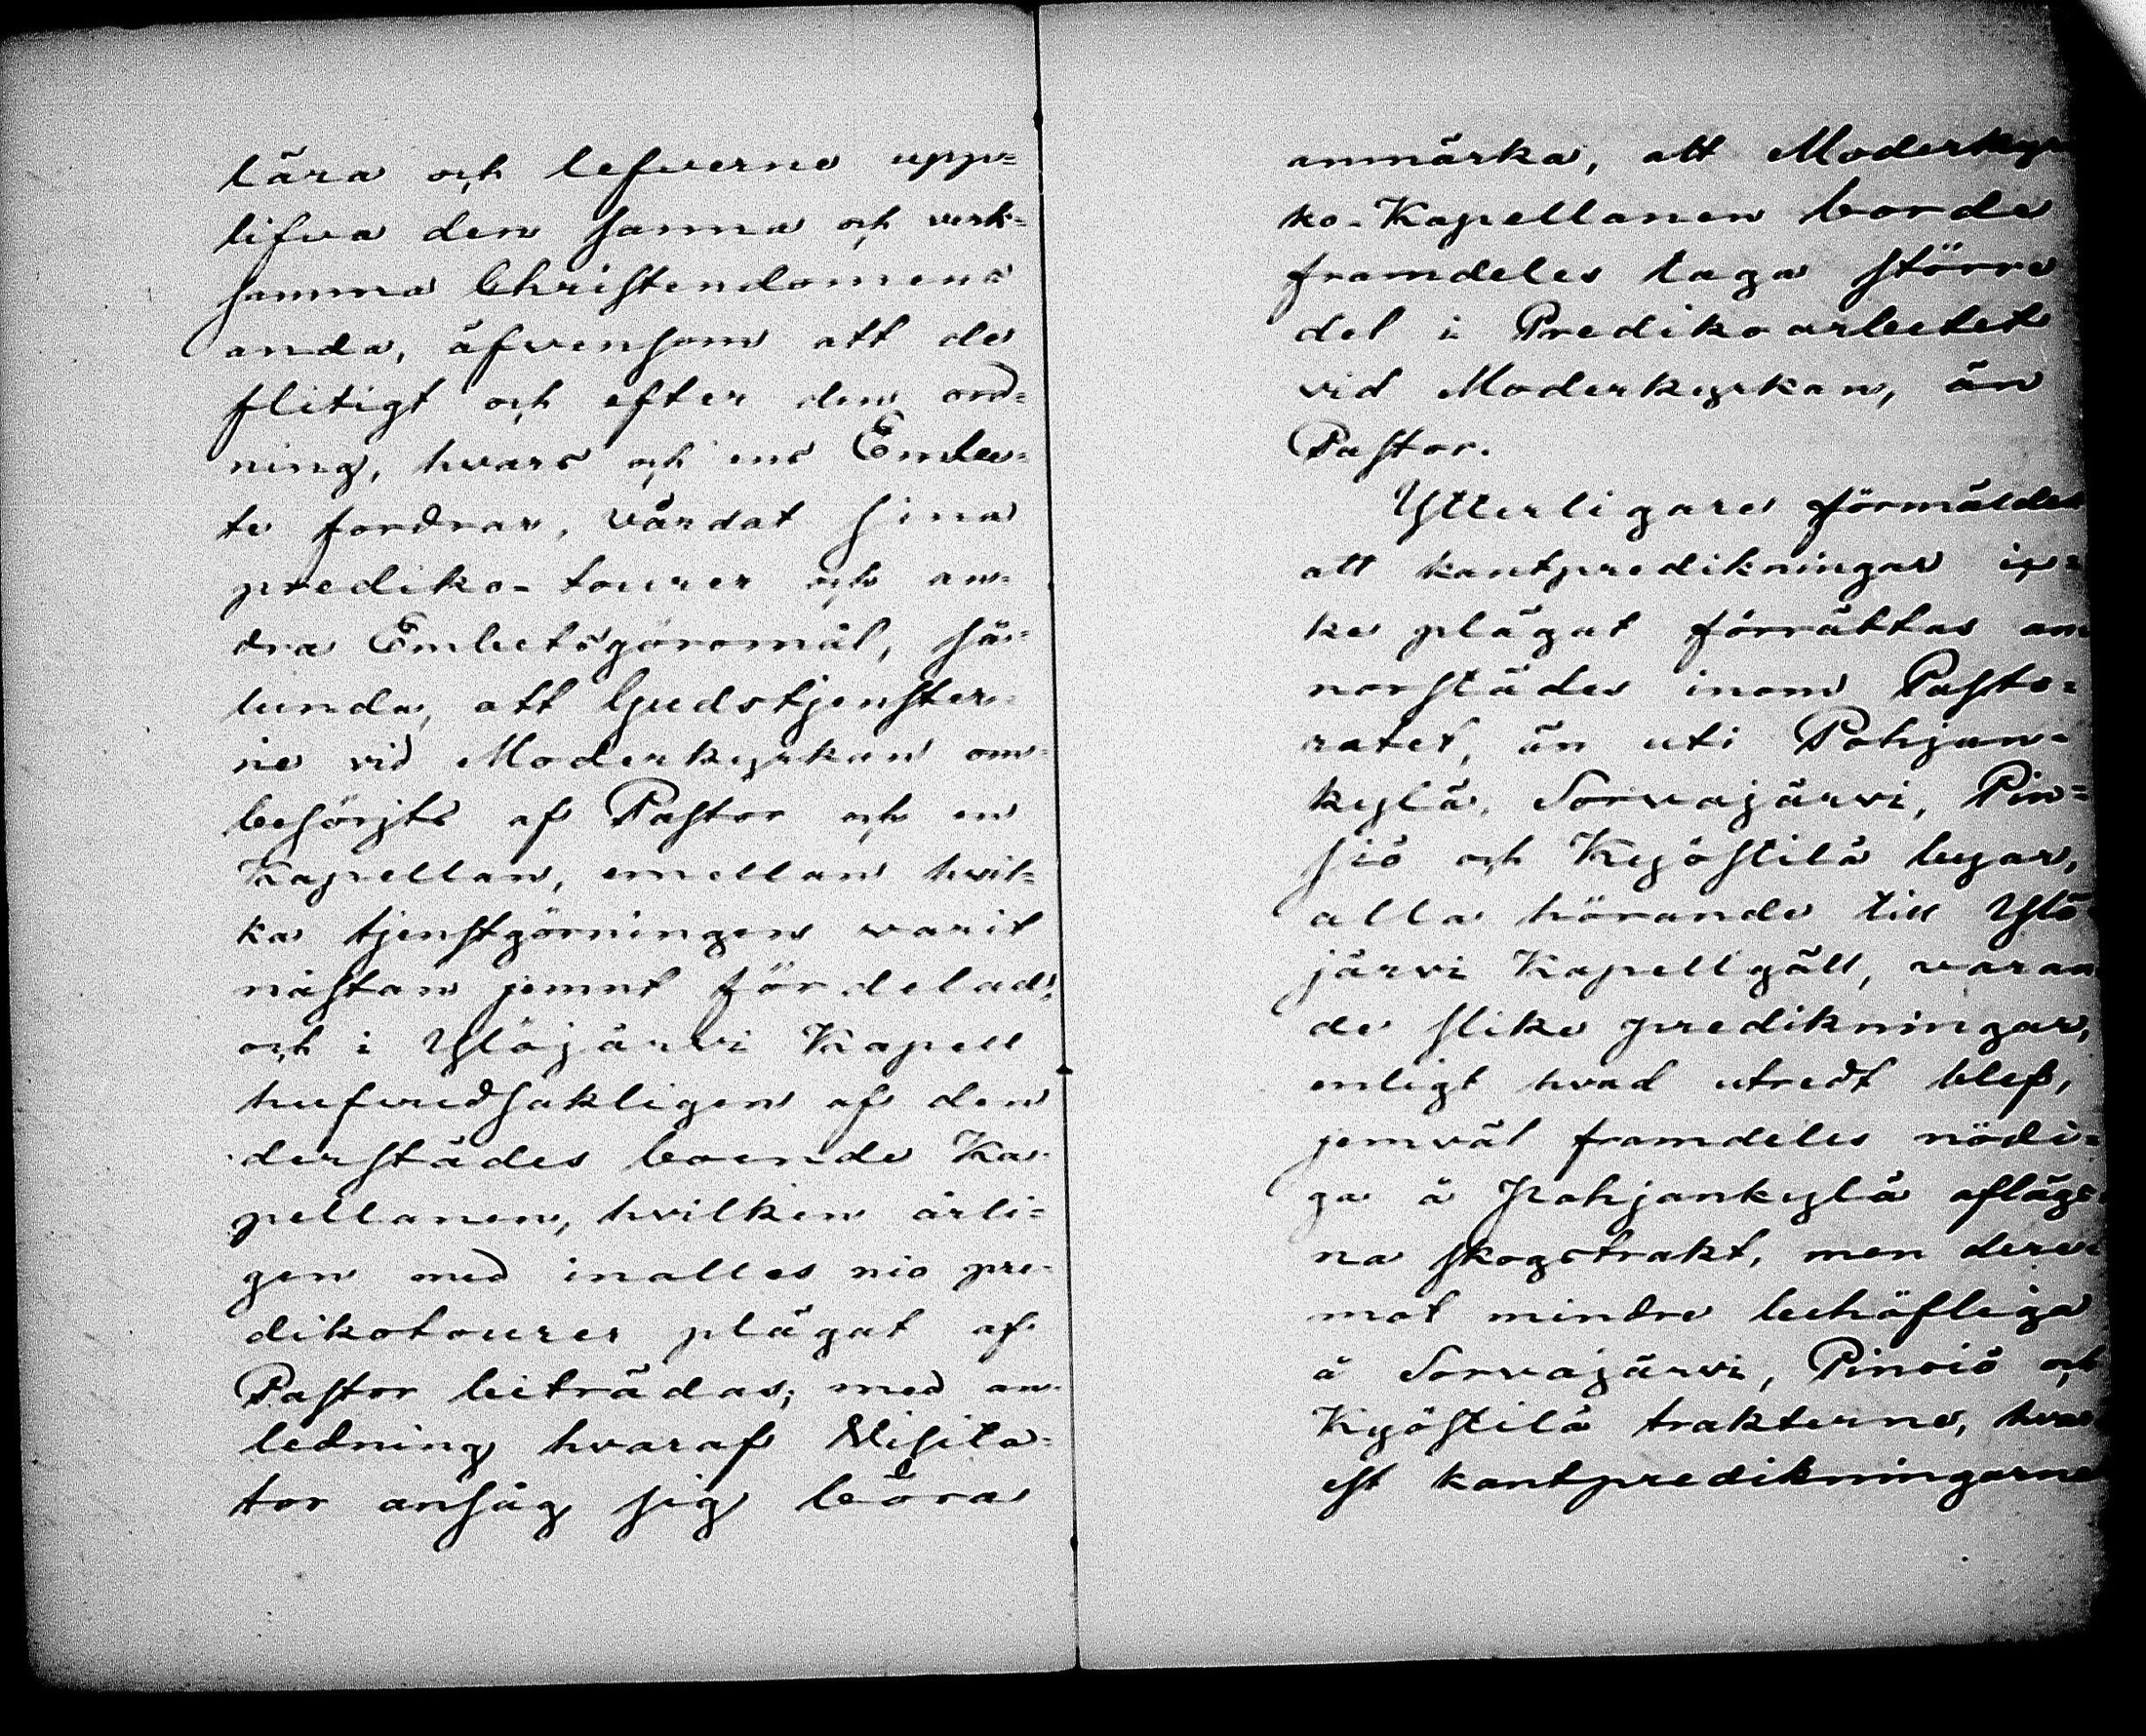 lära och lefverne upp=
lifva den sanna och verk=
samma Christendomens
anda, äfvensom att de
flitigt och efter den ord=
ning, hvars och ens Embe=
te fordrar, vårdat sina
prediko-tourer och an=
dra Embetsgöromål, så=
lunda, att Gudstjenster=
ne vid Moderkyrkan om=
besörjts af Pastor och en
Kapellan, emellan hvil=
ka tjenstgörningen varit
nästan jemnt fördelad,
och i Ylöjärvi Kapell
hufvudsakligen af den
derstädes boende Ka=
pellanen, hvilken årli=
gen med inalles nio pre=
dikotourer plägat af
Pastor biträdas; med an=
ledning hvaraf Visita=
tor ansåg sig böra
anmärka, att Moderkyr
ko-Kapellanen borde
framdeles taga större
del i Predikoarbetet
vid Moderkyrkan, än
Pastor.
Ytterligare förmäldes
att kantpredikningar ic=
ke plägat förrättas an
norstädes inom Pasto=
ratet, än uti Pohjan=
kylä, Sorvajärvi, Pin=
siö och Kyöstilä byar,
alla hörande till Ylö
järvi Kapellgäll, varan
de slike predikningar,
enligt hvad utredt blef,
jemväl framdeles nödi=
ga å Pohjankylä aflägs
na skogstrakt, men der
mot mindre behöfliga
å Sorvajärvi, Pinsiö och
Kyöstilä trakterne, hvar
est kantpredikningarne